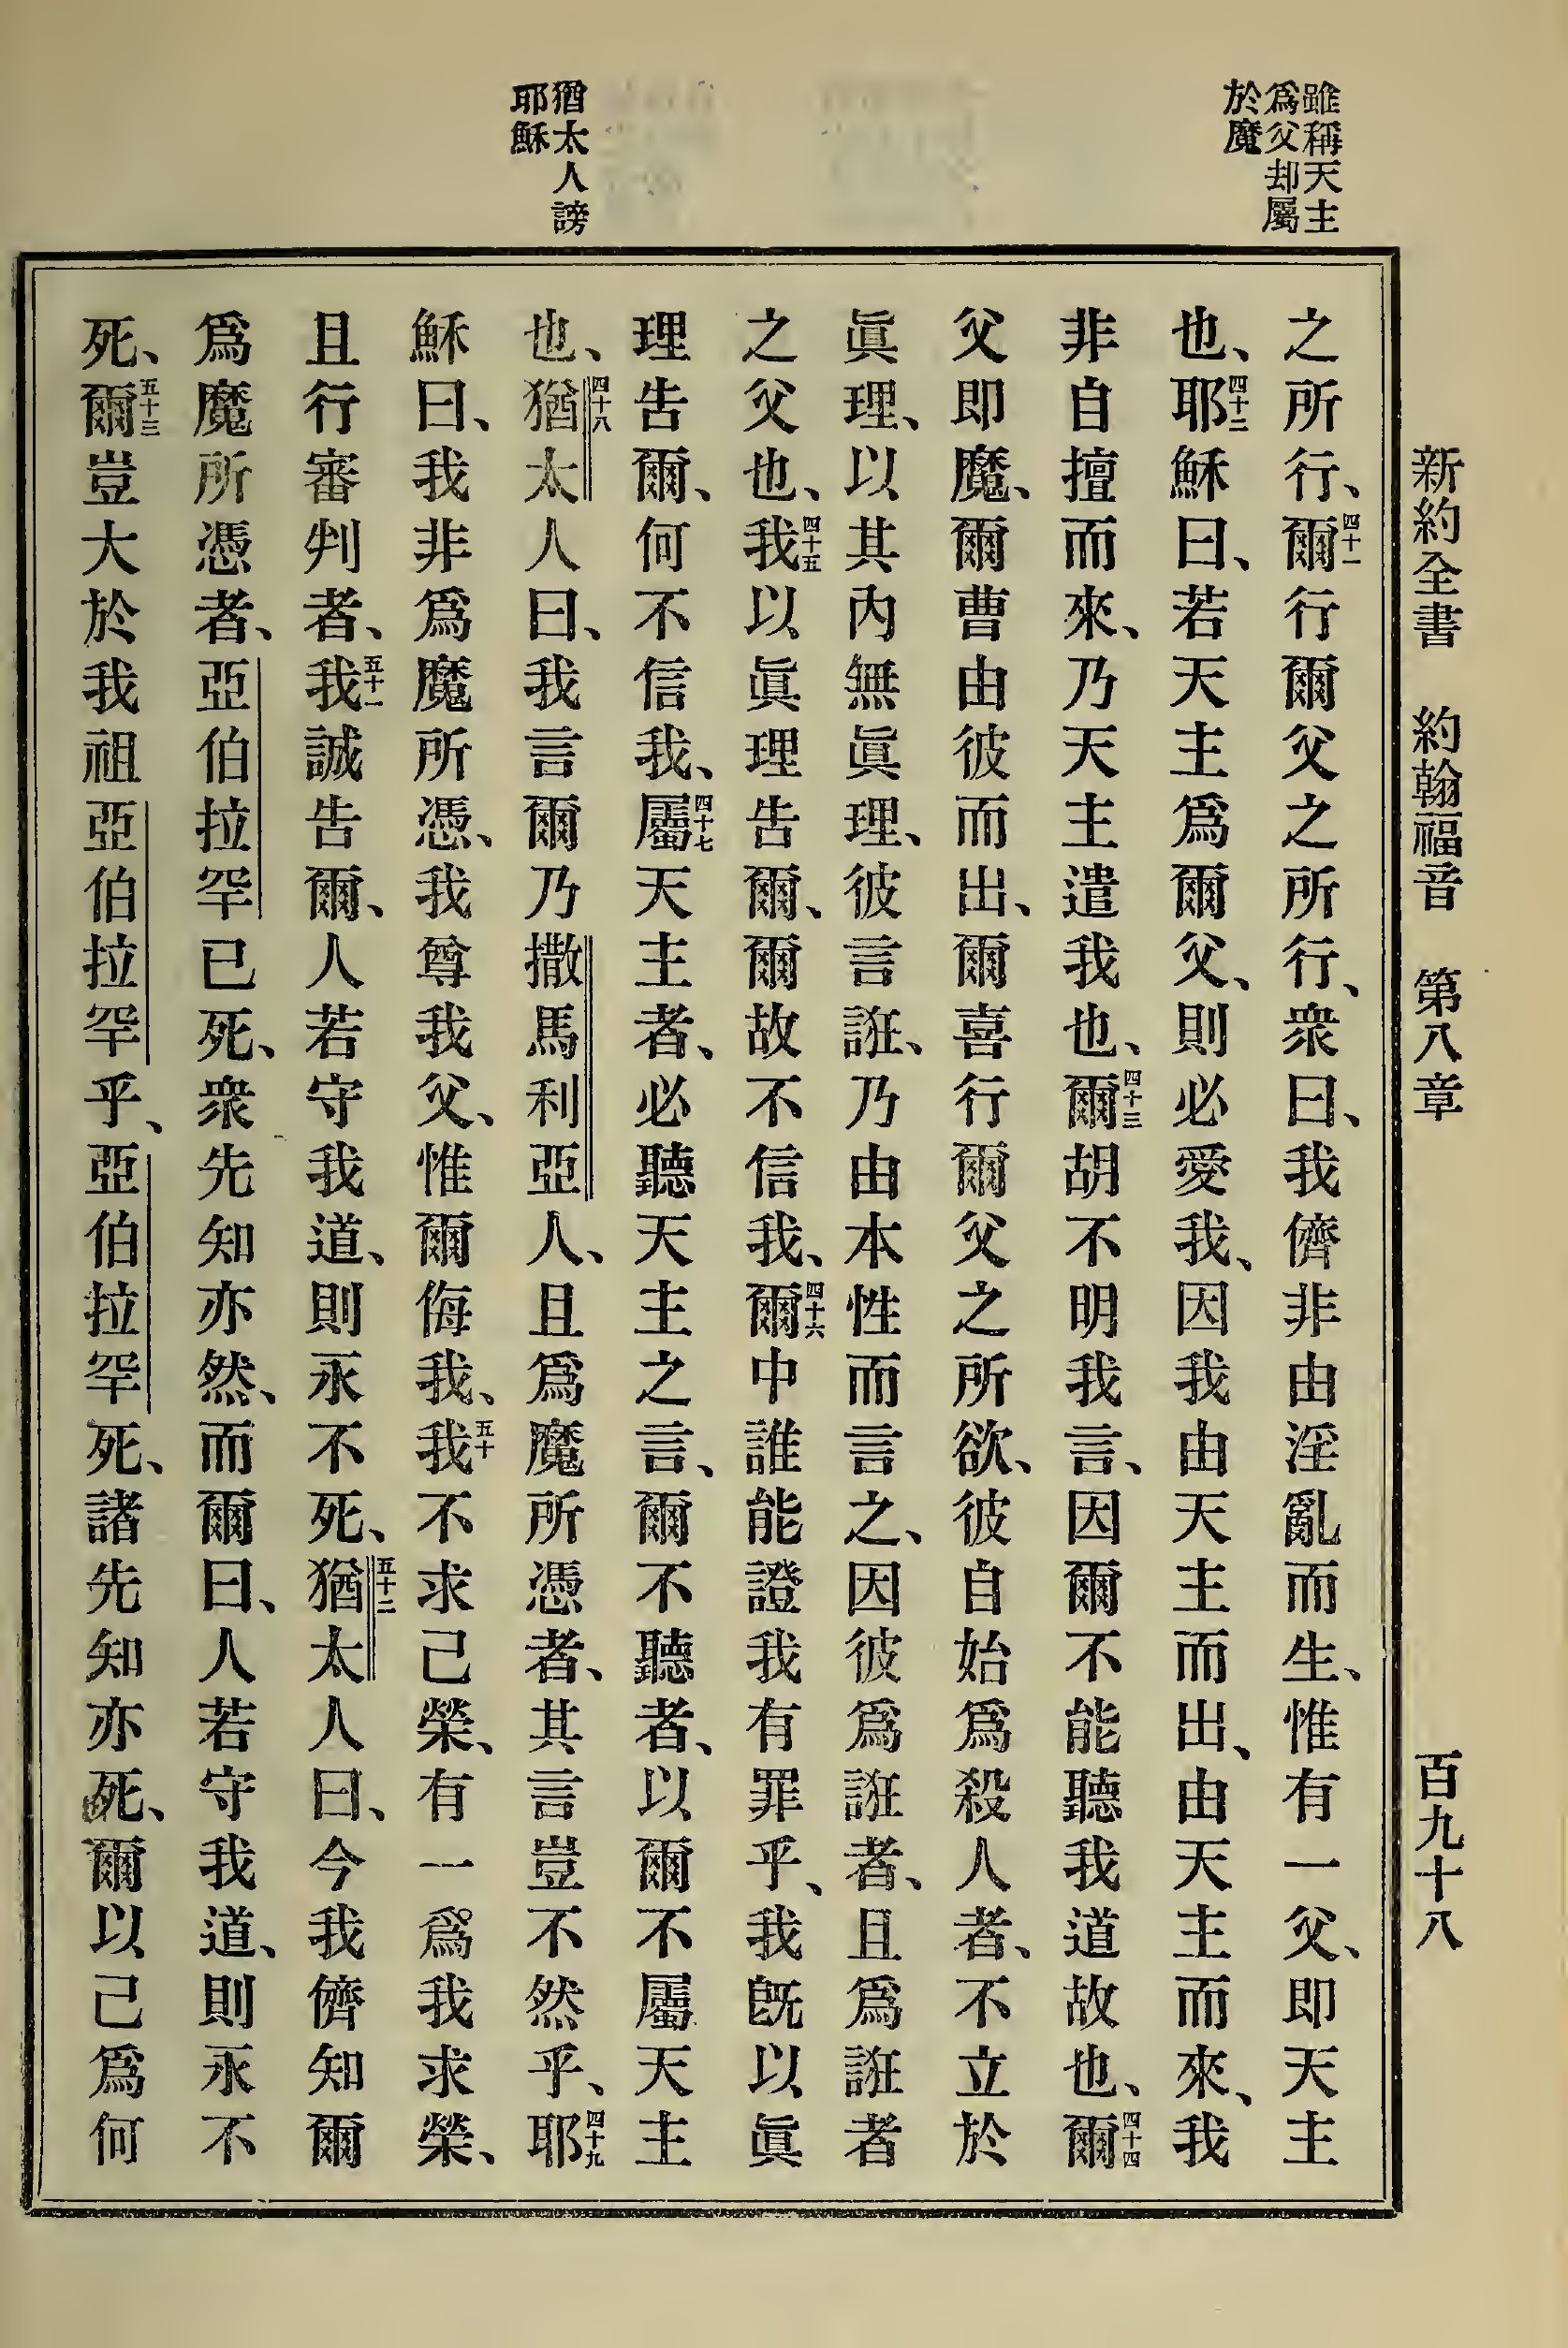 新約全書 約翰福音 第八章 百九十八
雖稱天主
爲父却屬
於魔
猶太人謗
耶穌
之所行、四十一爾行爾父之所行、衆曰、我儕非由淫亂而生、惟有一父、即天主
也、四十二耶穌曰、若天主爲爾父、則必愛我、因我由天主而出、由天主而來、我
非自擅而來、乃天主遣我也、四十三爾胡不明我言、因爾不能聽我道故也、四十四爾
父即魔、爾曹由彼而出、爾喜行爾父之所欲、彼自始爲殺人者、不立於
眞理、以其內無眞理、彼言誑、乃由本性而言之、因彼爲誑者、且爲誑者
之父也、四十五我以眞理告爾、爾故不信我、四十六爾中誰能證我有罪乎、我旣以眞
理告爾、何不信我、四十七屬天主者、必聽天主之言、爾不聽者、以爾不屬天主
也、四十八猶太人曰、我言爾乃撒馬利亞人、且爲魔所憑者、其言豈不然乎、四十九耶
穌曰、我非爲魔所憑、我尊我父、惟爾侮我、五十我不求己榮、有一爲我求榮、
且行審判者、五十一我誠告爾、人若守我道、則永不死、五十二猶太人曰、今我儕知爾
爲魔所憑者、亞伯拉罕已死、衆先知亦然、而爾曰、人若守我道、則永不
死、五十三爾豈大於我祖亞伯拉罕乎、亞伯拉罕死、諸先知亦死、爾以己爲何